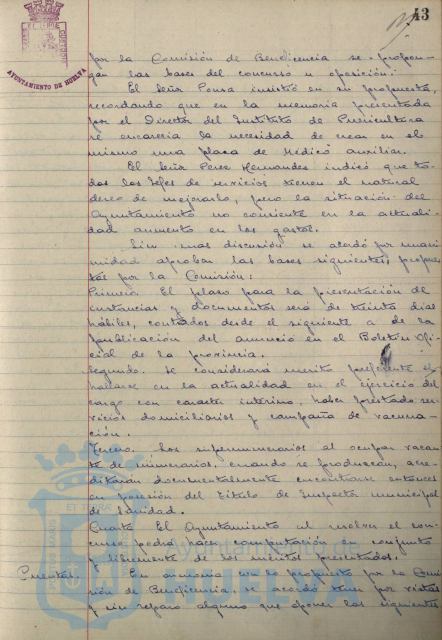 43
AYUNTAMIENTO DE HUELVA
por la Comisión de Beneficencia se propon-
gan las bases del concurso u oposición.
El Señor Ponsa insistió en su propuesta,
recordando que en la memoria presentada
por el Director del Instituto de Puericultura
se encarecía la necesidad de crear en el
mismo una plaza de Médico auxiliar.
El Señor Perez Hernandez indicó que to-
dos los Jefes de servicios tienen el natural
deseo de mejorarlo, pero la situación del
Ayuntamiento no consiente en la actuali-
dad aumento en los gastos.
Sin mas discusión se acordó por unani-
midad aprobar las bases siguientes, propues-
tas por la Comisión:
Primera. El plazo para la presentación de
instancias y documentos será de treinta dias
hábiles, contados desde el siguiente a de la
publicación del anuncio en el Boletin Ofi-
cial de la provincia.
Segundo. Se considerará merito preferente el
hallarse en la actualidad en el ejercicio del
cargo con caracter interino, haber prestado ser-
vicios domiciliarios y campaña de vacuna-
ción.
Tercero. Los supernumerarios al ocupar vacan-
te de numerarios, cuando se produzcan, acre-
ditarán documentalmente encontrarse entonces
en posesión del Titulo de Inspector municipal
de Sanidad.
Cuarto El Ayuntamiento al resolver el con-
curso podrá hacer computación en conjunto
y libremente de los méritos presentados.
Cuentas. En armonia con lo propuesto por la Comi-
sión de Beneficencia, se acordó tener por vistas
y sin reparo alguno que oponer los siguientes